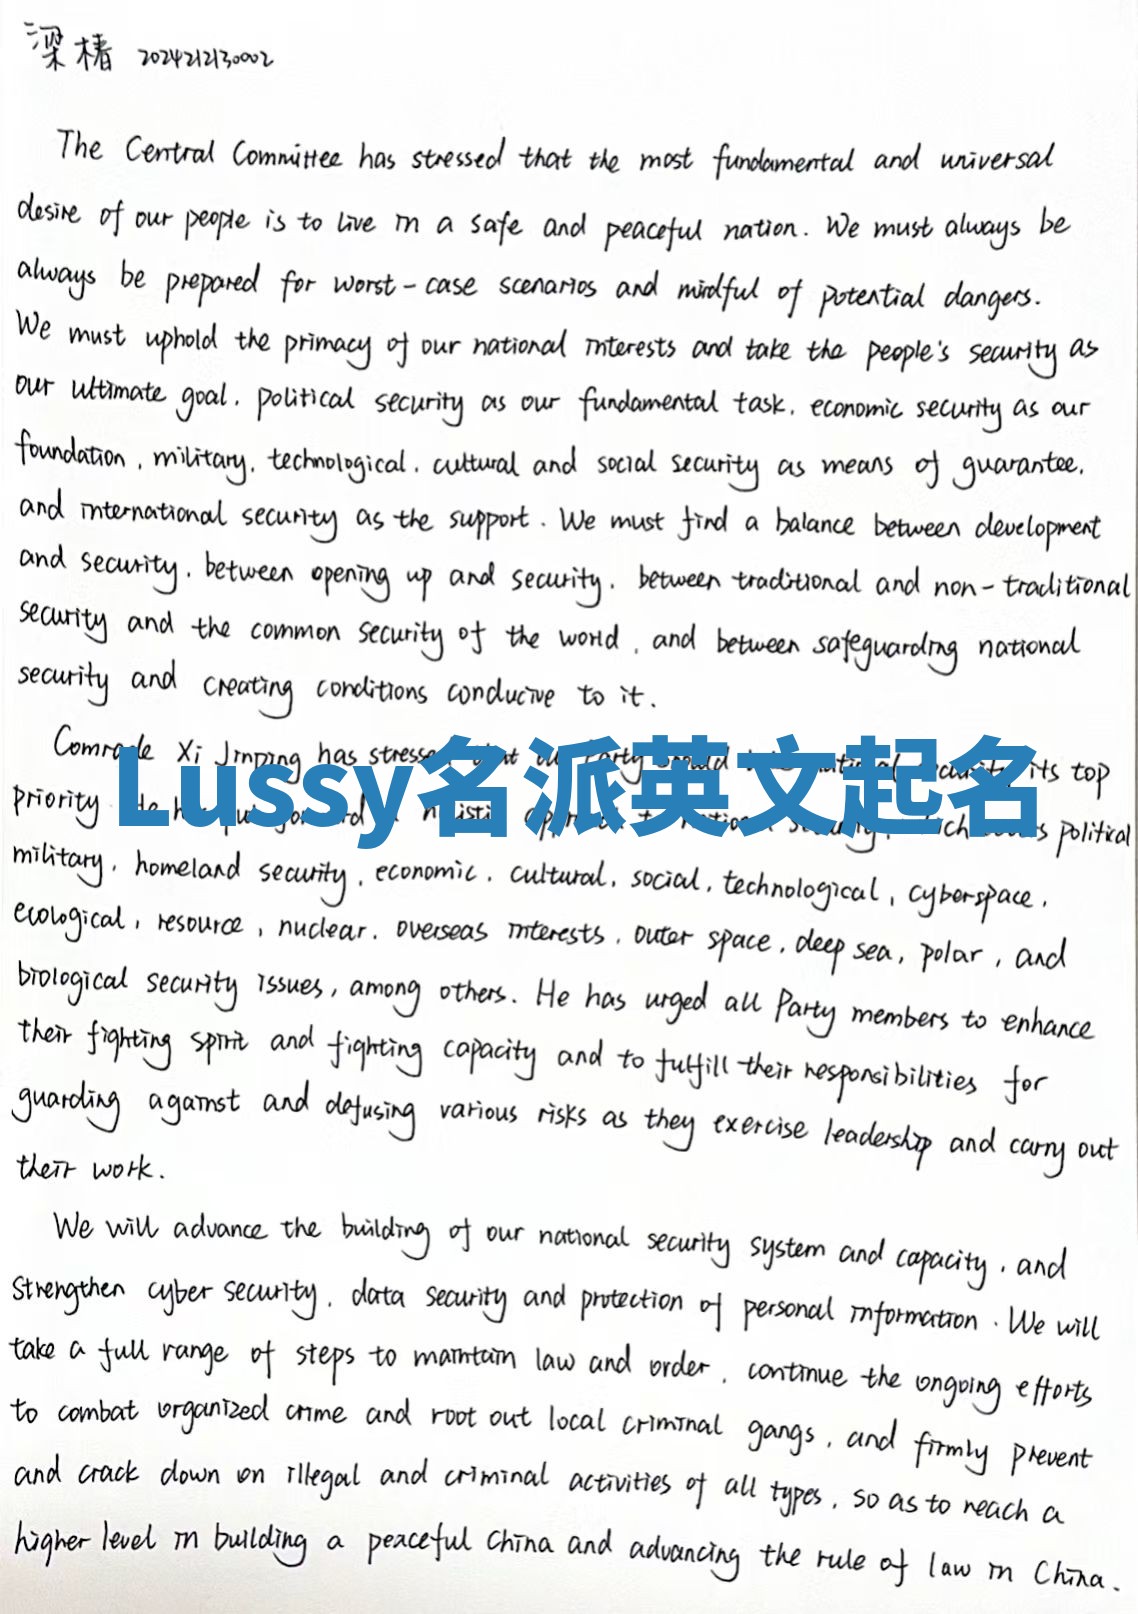 梁椿 2024212130002
The Central Committee has stressed that the most fundamental and universal
desire of our people is to live in a safe and peaceful nation. We must always be
always be prepared for worst-case scenarios and mindful of potential dangers.
We must uphold the primacy of our national interests and take the people's security as
our ultimate goal, political security as our fundamental task, economic security as our
foundation, military, technological, cultural and social security as means of guarantee,
and international security as the support. We must find a balance between development
and security, between opening up and security, between traditional and non-traditional
security and the common security of the world, and between safeguarding national
security and creating conditions conducive to it.
Comrade Xi Jinping has stressed that our Party should national security its top
Lussy名派英文起名
priority He has put forward holistic approach to national security, which covers political
military, homeland security, economic, cultural, social, technological, cyberspace,
ecological, resource, nuclear, overseas interests, outer space, deep sea, polar, and
biological security issues, among others. He has urged all Party members to enhance
their fighting spirit and fighting capacity and to fulfill their responsibilities for
guarding against and defusing various risks as they exercise leadership and carry out
their work.
We will advance the building of our national security system and capacity, and
strengthen cyber security, data security and protection of personal information. We will
take a full range of steps to maintain law and order, continue the ongoing efforts
to combat organized crime and root out local criminal gangs, and firmly prevent
and crack down on illegal and criminal activities of all types, so as to reach a
higher level in building a peaceful China and advancing the rule of law in China.